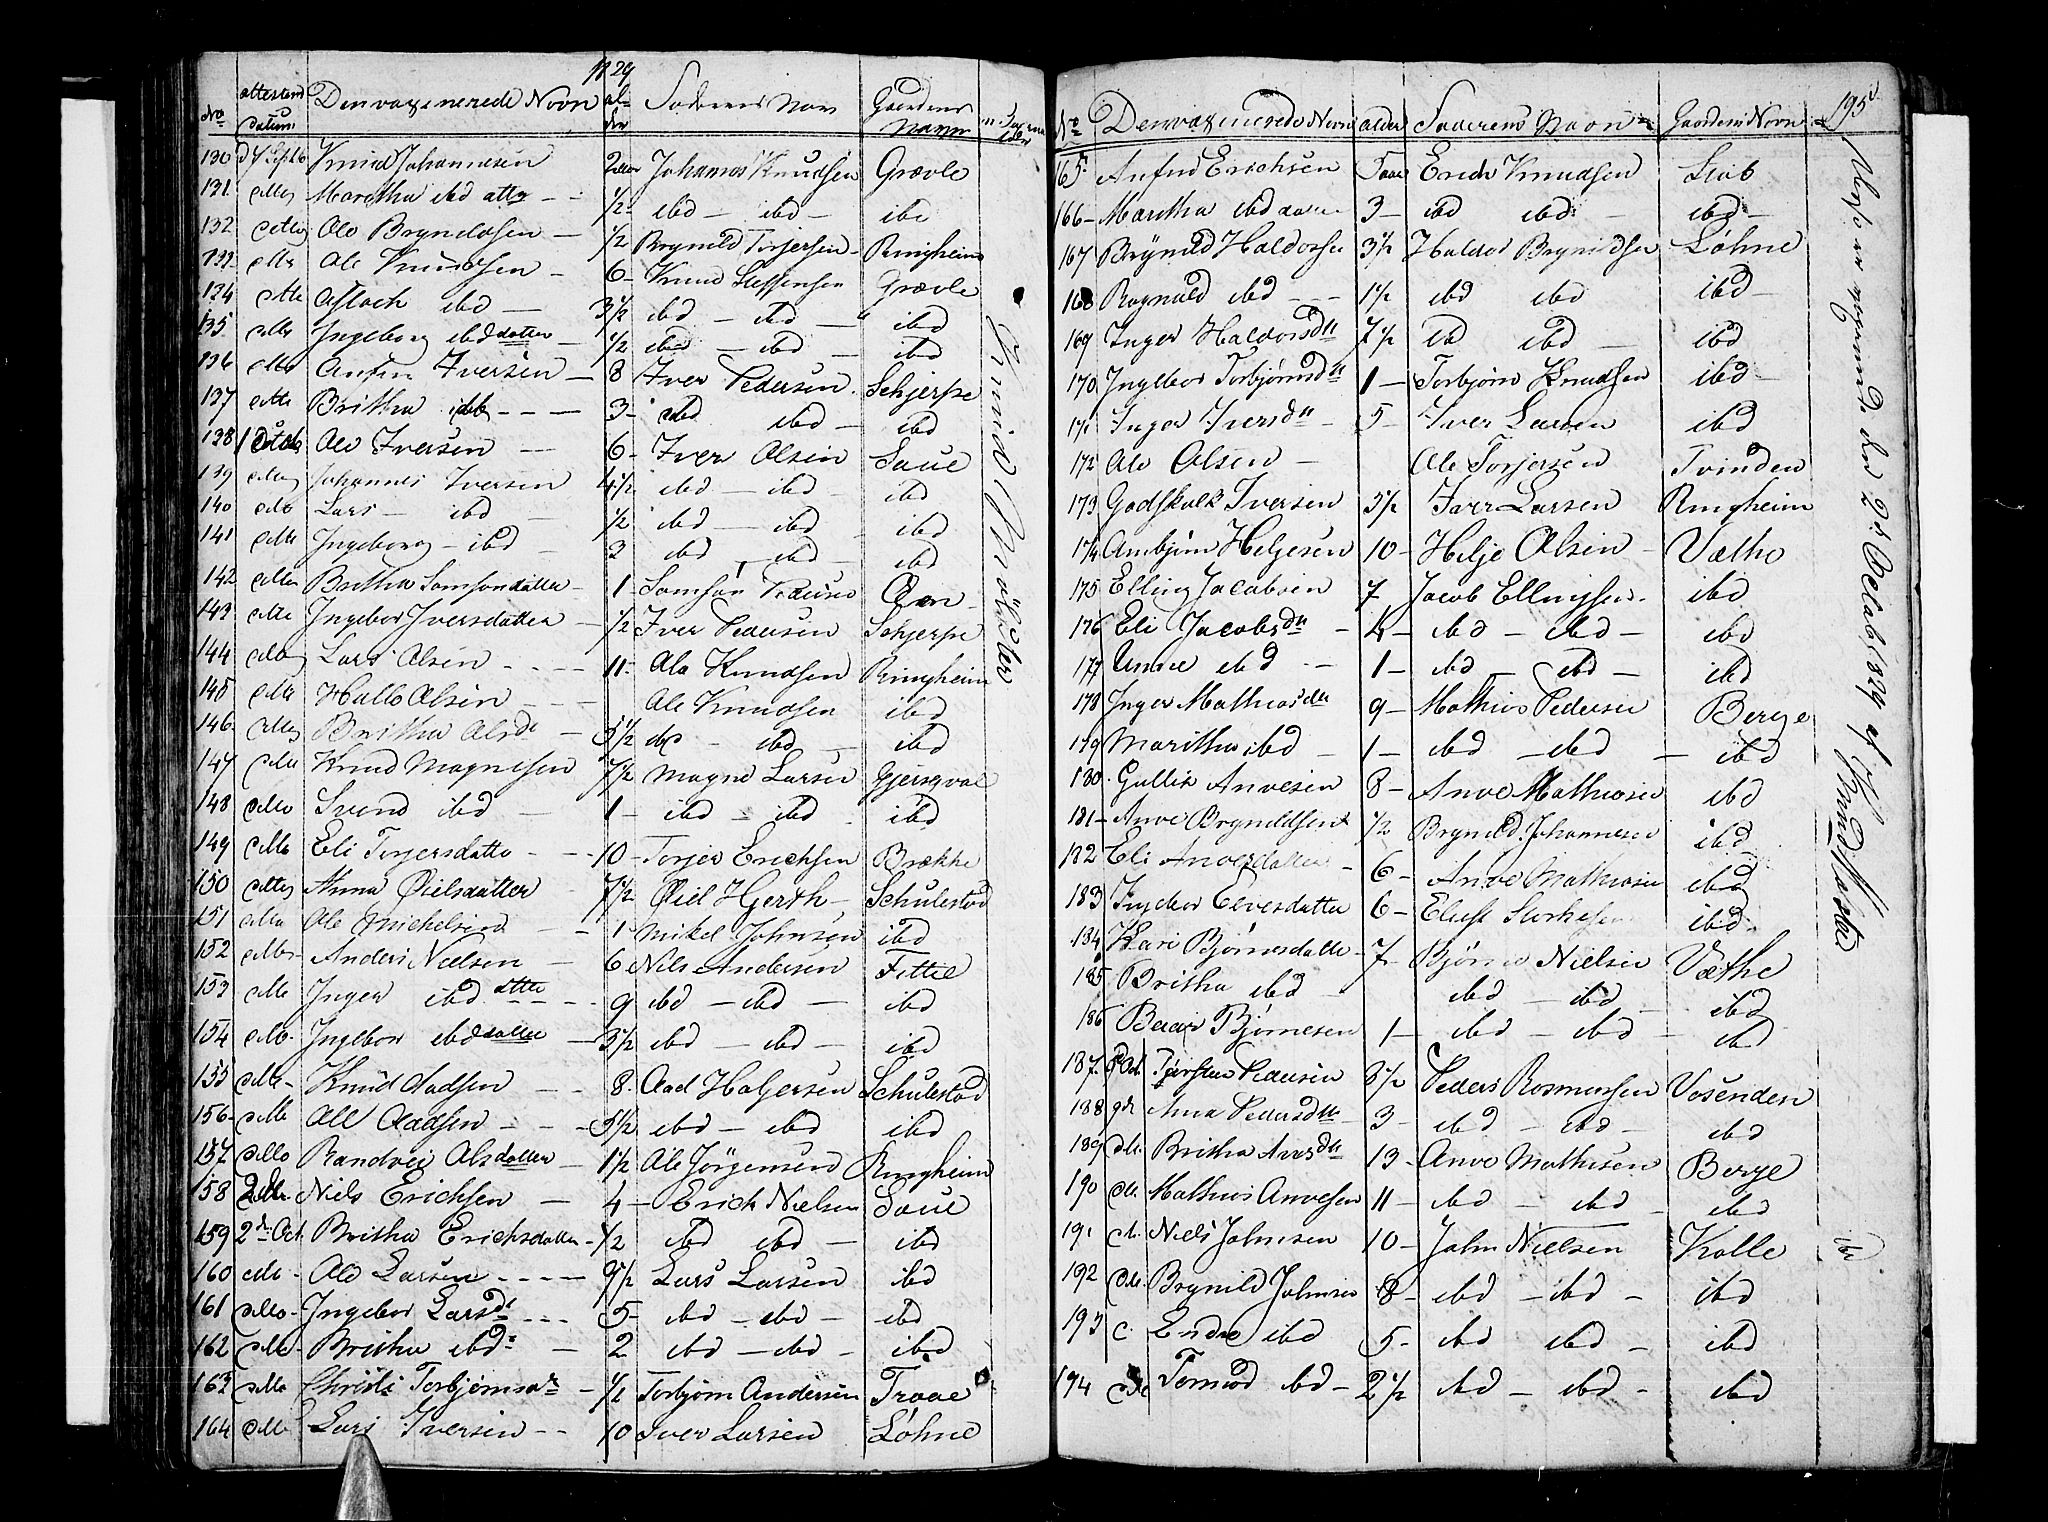 1829
No attestens datum Den vaxenerede Navn alder Faderens Navn Gaardens Navn
130 d 4 Sept 26 Knud Johannesen 2 Johannes Knudsen Grævle
131 dito Maritha ibd datter ½ ibd ibd ibd
132 dito Ole Bryneldsen ½ Brynild Torjersen Ringheim
133 dito Ole Knudsen 6 Knud Steffensen Grævle
134 dito Aslach ibd 3½ ibd ibd ibd
135 dito Ingeborg ibd datter ½ ibd ibd ibd
136 dito Anfin Iversen 8 Iver Pedersen Schjerpe
137 dito Britha ibd 3 ibd ibd ibd
138 Ole Iversen 6 Iver Olsen Saue
139 dito Johannes Iversen 4½ ibd ibd ibd
140 dito Lars ibd ½ ibd ibd ibd
141 dito Ingeborg ibd 3 ibd ibd ibd
142 dito Britha Samsondatter 1 Samson Pedersen
143 dito Ingebor Iversdatter ½ Iver Pedersen Schjerpe
144 dito Lars Olsen 11 Ole Knudsen Ringheim
145 dito Halle Olsen Ole Knudsen ibd
146 dito Britha Olsdt 5½ ibd ibd ibd
147 dito Knud Magnesen 7½ Magne Larsen Gjersqval
148 dito Svend ibd 1 ibd ibd ibd
149 dito Eli Torjersdatter 10 Torjer Erichsen Brække
150 dito Anna Øielsdatter 7½ Øiel Hjerth Schulestad
151 dito Ole Michelsen 1 Mikel Johnsen ibd
152 dito Anders Nielsen 6 Nils Andersen Fittie
153 dito Inger ibd datter 9 ibd ibd ibd
154 dito Ingebor ibd datter 3½ ibd ibd ibd
155 dito Knud Aadsen 8 Aad Holgersen Schulestad
156 dito Ole Aadsen 5½ ibd ibd ibd
157 dito Randvei Olsdatter 1½ Ole Jörgensen Ringheim
158 Niels Erichsen 4 Erich Nielsen Saue
159 2d Oct Britha Erichsdatter ½ ibd ibd ibd
160 dito Ole Larsen 9½ Lars Larsen ibd
161 dito Ingebor Larsdt 5 ibd ibd ibd
162 dito Britha ibd 2 ibd ibd ibd
163 dito Christi Torbjörns ½ Torbjörn Andersen Traae
164 dito Lars Iversen 10 Iver Larsen Løhne
Knud Mølster
195
No Den vaxinerede Navn alder Faderens Navn Gaardens Navn
165 Anfind Erichsen 5 aar Erich Knudsen
166 Maritha ibd datter 3 ibd ibd ibd
167 Brynild Haldorsen 3½ Haldor Brynildsen Løhne
168 Rognald ibd 1½ ibd ibd ibd
169 Inger Haldorsdtr 7½ ibd ibd ibd
170 Ingebor Torbjörnsdtr 1 Torbjörn Knudsen ibd
171 Inger Iversdtr 5 Iver Larsen ibd
172 Ole Olsen Ole Torjersen Tvinden
173 Godskalk Iversen 5½ Iver Larsen Ringheim
174 Arnbjörn Helgesen 10 Helje Olsen Væthe
175 Elling Jacobsen 7 Jacob Ellingsen ibd
176 Eli Jacobsdtr 4 ibd ibd ibd
177 Unne ibd 1 ibd ibd ibd
178 Inger Mathiasdtr 9 Mathias Pedersen Berge
179 Maritha ibd 1 ibd ibd ibd
180 Gullik Anvesen 8 Anve Mathiasen ibd
181 Anve Brynildsen ½ Brynild Johannesen ibd
182 Eli Anvesdatter 6 Anve Mathiasen ibd
183 Ingebor Elvesdatter 6 ibd
184 Kari Bjørnesdatter 7 Bjørne Nielsen Væthe
185 Britha ibd ibd ibd ibd
186 Bjørnesen 1 ibd ibd ibd
187 Oct. Tjersten Pedersen 3½ Peders Rosmussen Vosenden
188 Anna Pedersdtr 3 ibd ibd ibd
189 Britha Anvesdtr 13 Anve Mathisen Berge
190 Mathias Anvesen 11 ibd ibd ibd
191 Niels Johnsen 10 John Nielsen Kolle
192 Brynild Johnsen 8 ibd ibd ibd
193 Endre ibd 5 ibd ibd ibd
194 Tormod ibd 2½ ibd ibd ibd
den 2d Octob 1829 af Knud Mølster